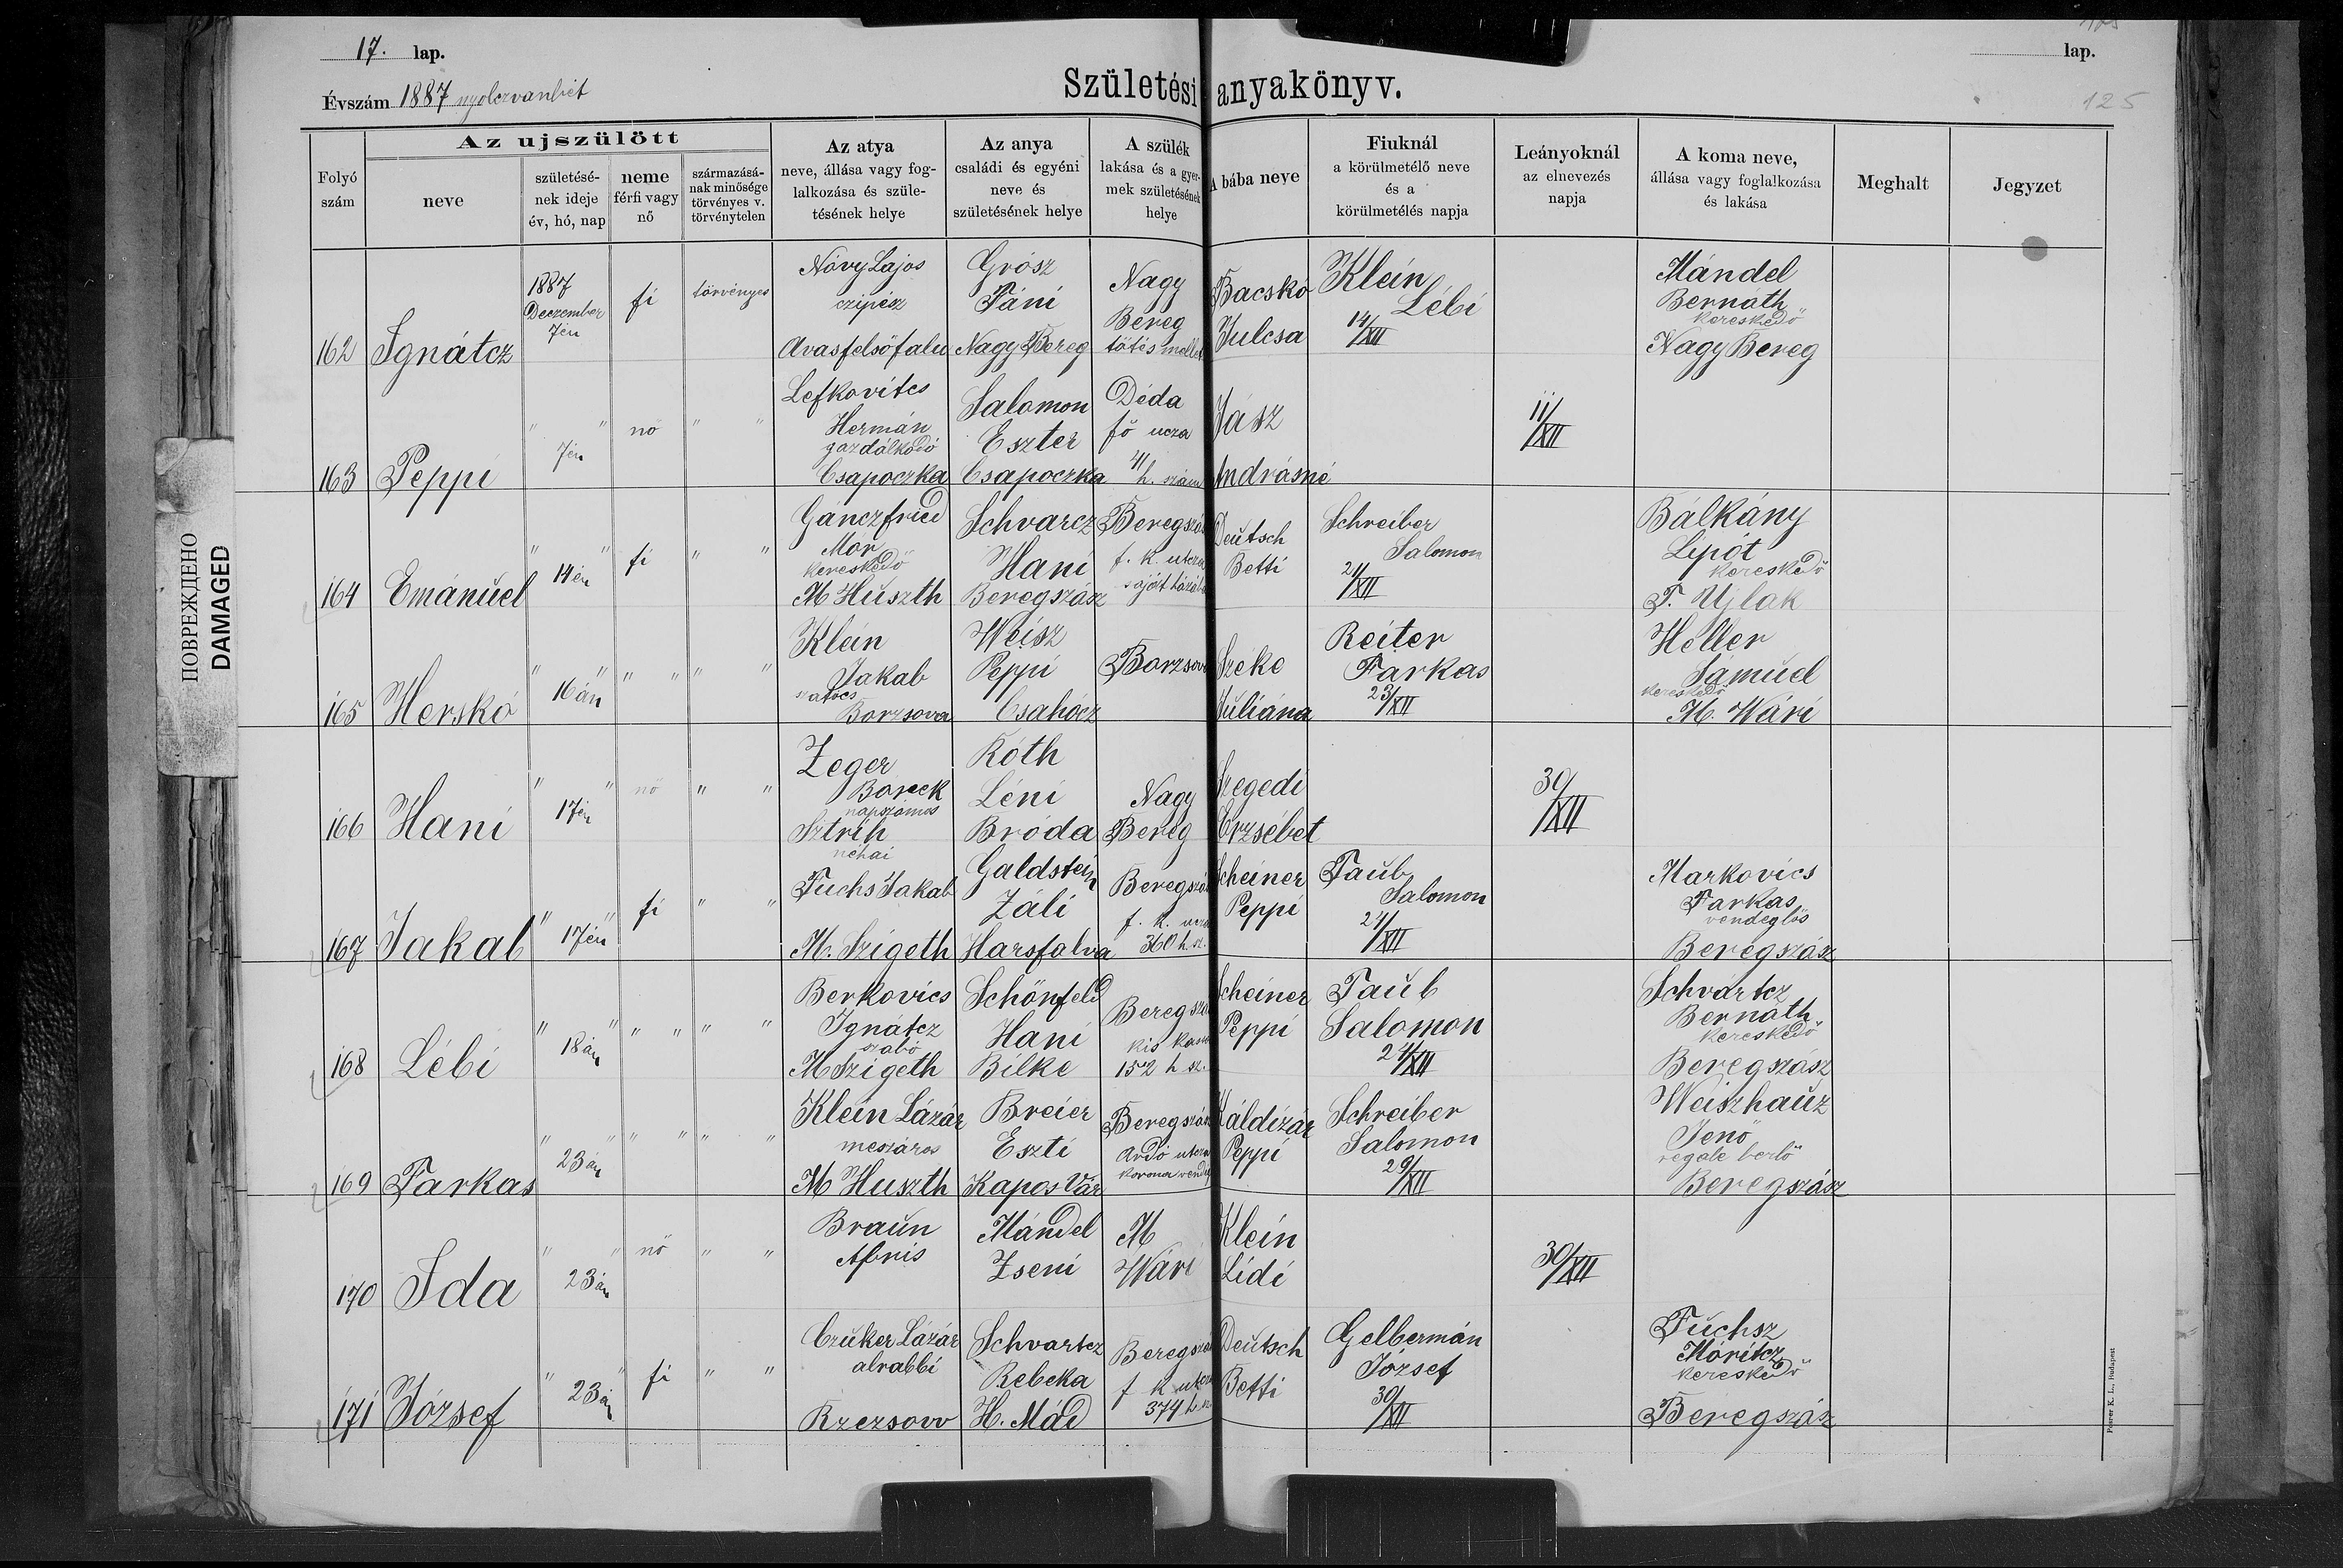 17. lap.
lap.
Születési anyakönyv.
Évszám 1887 nyolczvanhét
125
Folyó szám
Az ujszülött
neve
születésé-
nek ideje
év, hó, nap
neme
férfi vagy
nő
származásá-
nak minősége
törvényes v.
törvénytelen
Az atya
neve, állása vagy fog-
lalkozása és szüle-
tésének helye
Az anya
családi és egyéni
neve és
születésének helye
A szülék
lakása és a gyer-
mek születésének
helye
A bába neve
Fiuknál
a körülmetélő neve
és a
körülmetélés napja
Leányoknál
az elnevezés
napja
A koma neve,
állása vagy foglalkozása
és lakása
Meghalt
Jegyzet
162 Ignátcz
1887
Deczember
7én
fi
törvényes
Nóvy Lajos
czipész
Avasfelsőfalu
Grósz
Fáni
Nagy Bereg
Nagy
Bereg
Bacskó
Julcsa
Klein
Lébi
14/XII
Mándel
Bernáth
kereskedő
Nagy Bereg
163 Peppi
" "
7én
nő
" "
Lefkovitcs
Hermán
gazdálkodó
Csapoczka
Salamon
Eszter
Csapoczka
Déda
fő ucza
41 h. szám
Jász
Andrásné
11/XII
164 Emánŭel
" "
14én
fi
" "
Gánczfried
Mór
kereskedő
M Hŭszth
Schvarcz
Hani
Beregszász
Beregszász
f. k. utcza
saját házáb
Deŭtsch
Betti
Schreiber
Salomon
21/XII
Bálkány
Lipót
kereskedő
T. Ujlak
165 Herskó
" "
16án
" "
" "
Klein
Jakab
szatocs
Borzsova
Weisz
Peppi
Csahócz
Borzsova
Szeke
Jŭliána
Reiter
Farkas
23/XII
Heller
Sámŭel
kereskedő
M. Wári
166 Hani
" "
17én
nő
" "
Zeger
Borek
napszámos
Sztrih
Róth
Léni
Bróda
Nagy
Bereg
Szegedi
Erzsébet
30/XII
167 Jakab
" "
17én
fi
" "
néhai
Fuchs Jakab
M. Szigeth
Galdstein
Záli
Harsfalva
Beregszás
f. k. ucza
360 h. sz.
Scheiner
Peppi
Taŭb
Salomon
24/XII
Markovics
Farkas
vendeglős
Beregszász
168 Lébi
" "
18án
" "
" "
Berkovics
Ignátcz
szabó
M Szigeth
Schönfeld
Hani
Bilke
Beregszá
kis
152 h sz.
Scheiner
Peppi
Taŭb
Salomon
24/XII
Schvártcz
Bernáth
kereskedő
Beregszász
169 Farkas
" "
23án
" "
" "
Klein Lázár
meszáros
M Huszth
Breier
Eszti
Kapos Vár
Beregszász
Ardó utcza
korona vendég
Káldizár
Peppi
Schreiber
Salomon
29/XII
Weiszhaŭz
Jenő
regale berlő
Beregszász
170 Ida
" "
23án
nő
" "
Braŭn
Mándel
Zseni
M
Wári
Klein
Lidi
30/XII
171 József
" "
23án
fi
" "
Czŭker Lázár
alrabbi
Rzezsow
Schvartcz
Rebeka
H. Mád
Beregszá
f k utcza
374 h.
Deŭtsch
Betti
Gelbermán
József
30/XII
Fŭchsz
Móritcz
kereskedő
Beregszász
ПОВРЕЖДЕНО
DAMAGED
Posner K. L., Budapest